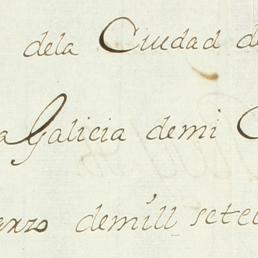 dela Ciudad de
a Galicia demi C
erzo demill sete